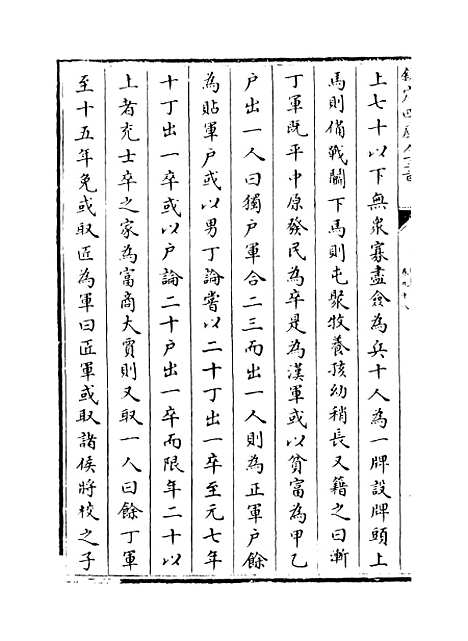 欽定四庫全書
上七十以下無衆寡盡僉為兵十人為一牌設牌頭上
馬則備戰鬭下馬則屯聚牧養孩幼稍長又籍之曰漸
丁軍既平中原發民為卒是為漢軍或以貧富為甲乙
户出一人曰獨户軍合二三而出一人則為正軍户餘
為貼軍户或以男丁論嘗以二十丁出一卒至元七年
十丁出一卒或以户論二十户出一卒而限年二十以
上者充士卒之家為富商大賈則又取一人曰餘丁軍
至十五年免或取匠為軍曰匠軍或取諸侯將校之子